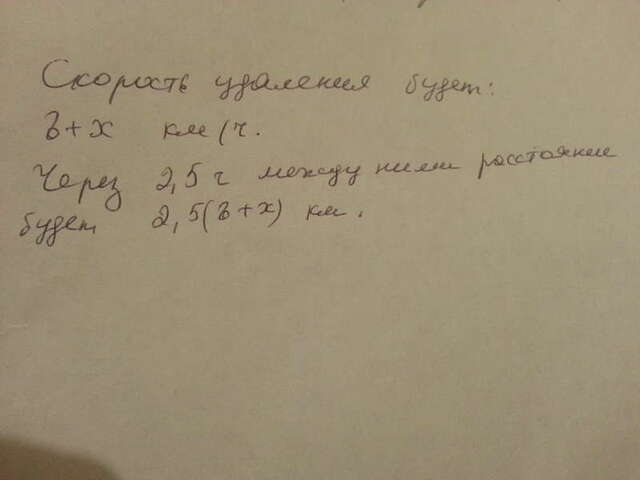 Скорость удаления будет:
в+х км/ч.
Через 2,5 ч между ними расстояние
будет 2,5(в+х) км.